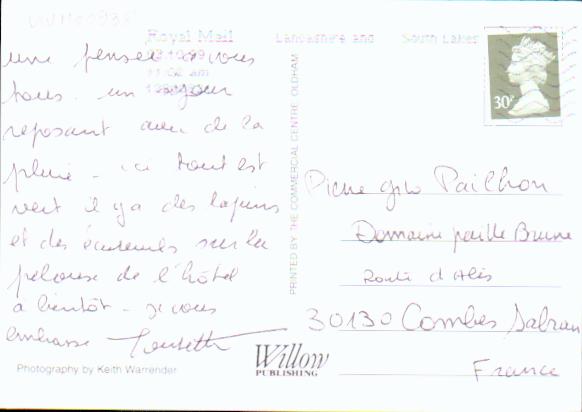 Royal Mail
Lancashire and South Lakes
03.10.99
11:02 am
une pensée à vous
tous. un séjour
reposant avec de la
pluie - ici tout est
vert il y a des lapins
et des écureuils sur la
pelouse de l'hôtel
à bientôt - je vous
embrasse
Photography by Keith Warrender
PRINTED BY THE COMMERCIAL CENTRE OLDHAM
Willow
PUBLISHING
30P
Pailhon
Domaine paille Brune
Route d'Alès
30130 Combes Sabran
France